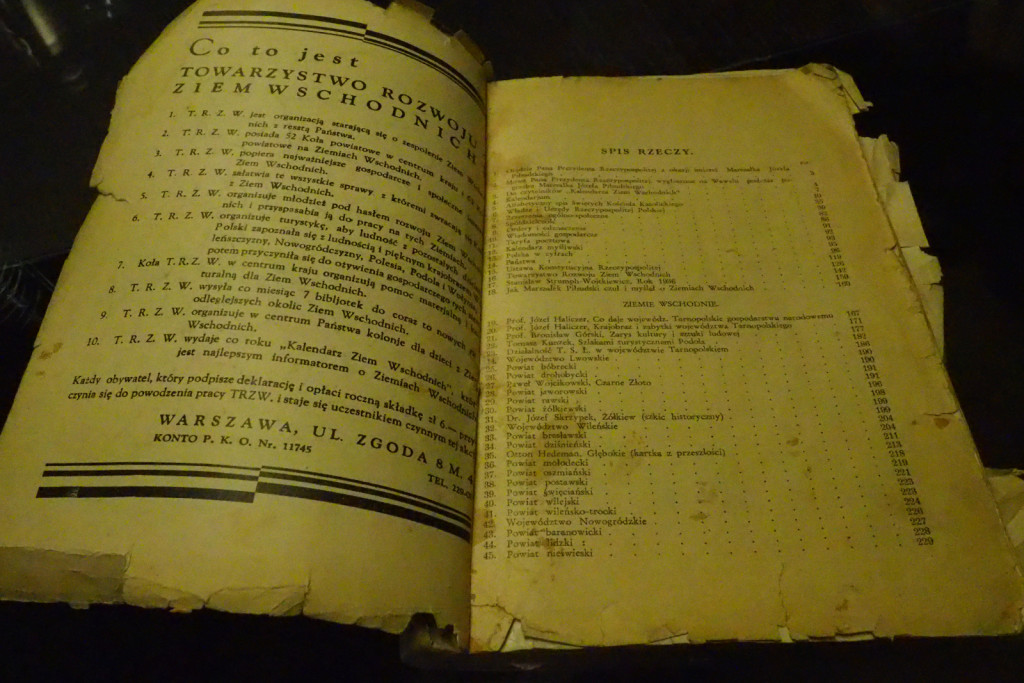 Co to jest
TOWARZYSTWO ROZWOJU
ZIEM WSCHODNICH
1. T. R. Z. W. jest organizacją starającą się o zespolenie Ziem
nich z resztą Państwa.
2. T. R. Z. W. posiada 52 Koła powiatowe w centrum kraju i
powiatowe na Ziemiach Wschodnich.
3. T. R. Z. W. popiera najważniejsze gospodarcze i społeczne
Ziem Wschodnich.
4. T. R. Z. W. załatwia te wszystkie sprawy z któremi zwracają się
z Ziem Wschodnich.
5. T. R. Z. W. organizuje młodzież pod hasłem rozwoju Ziem
nich i przysposabia ją do pracy na tych Ziemiach.
6. T. R. Z. W. organizuje turystykę, aby ludność z pozostałych
Polski zapoznała się z ludnością i pięknym krajobrazem
leńszczyzny, Nowogródczyzny, Polesia, Podola i
potem przyczyniła się do ożywienia gospodarczego tych
7. Koła T. R. Z. W. w centrum kraju organizują pomoc materjalną i
turalną dla Ziem Wschodnich.
8. T. R. Z. W. wysyła co miesiąc 7 bibljotek do coraz to nowych
odleglejszych okolic Ziem Wschodnich.
9. T. R. Z. W. organizuje w centrum Państwa kolonje dla dzieci z Ziem
Wschodnich.
10. T. R. Z. W. wydaje co roku „Kalendarz Ziem Wschodnich",
jest najlepszym informatorem o Ziemiach Wschodnich
Każdy obywatel, który podpisze deklarację i opłaci roczną składkę zł 6.—
czynia się do powodzenia pracy TRZW. i staje się uczestnikiem czynnym tej
WARSZAWA, UL. ZGODA 8 M. 4
KONTO P. K. O. Nr. 11745
TEL.
SPIS RZECZY.
Do czytelników „Kalendarza Ziem Wschodnich"
Kalendarium
Alfabetyczny spis świętych Kościoła Katolickiego
Władze i Urzędy Rzeczypospolitej Polskiej
Wiadomości gospodarcze
Taryfa pocztowa
Kalendarz myśliwski
Polska w cyfrach
Państwa
Ustawa Konstytucyjna Rzeczypospolitej
Towarzystwo Rozwoju Ziem Wschodnich
Stanisław Strumph-Wojtkiewicz, Rok 1936
18. Jak Marszałek Piłsudski czuł i myślał o Ziemiach Wschodnich
ZIEMIE WSCHODNIE.
19. Prof. Józef Haliczer, Co daje wojewódz. Tarnopolskie gospodarstwu narodowemu 167
20. Prof. Józef Haliczer, Krajobraz i zabytki województwa Tarnopolskiego 171
21. Prof. Bronisław Górski, Zarys kultury i sztuki ludowej 177
22. Tomasz Kunzek, Szlakami turystycznemi Podola 182
23. Działalność T. S. L. w województwie Tarnopolskiem 186
24. Województwo Lwowskie 190
25. Powiat bóbrecki 190
26. Powiat drohobycki 191
27. Paweł Wójcikowski, Czarne Złoto 191
28. Powiat jaworowski 196
29. Powiat rawski 198
30. Powiat żółkiewski 199
31. Dr. Józef Skrzypek, Żółkiew (szkic historyczny) 199
32. Województwo Wileńskie 204
33. Powiat brasławski 204
34. Powiat dziśnieński 211
35. Otton Hedeman, Głębokie (kartka z przeszłości) 213
36. Powiat mołodecki 218
37. Powiat oszmiański 219
38. Powiat postawski 221
39. Powiat święciański 223
40. Powiat wilejski 223
41. Powiat wileńsko-trocki 224
42. Województwo Nowogródzkie 226
43. Powiat baranowicki 227
44. Powiat lidzki 228
45. Powiat nieświeski 229